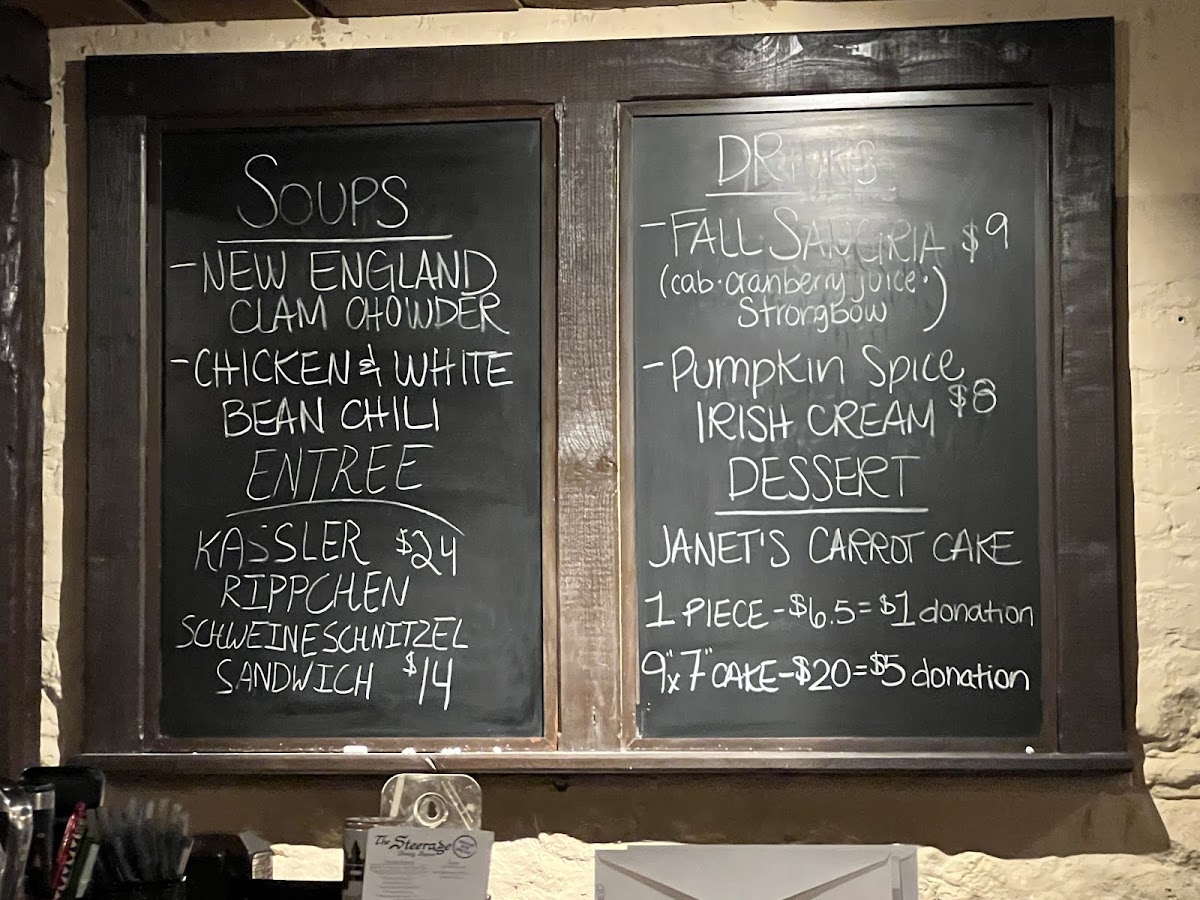 SOUPS
- NEW ENGLAND
CLAM CHOWDER
- CHICKEN & WHITE
BEAN CHILI
ENTREE
KASSLER $24
RIPPCHEN
SCHWEINESCHNITZEL
SANDWICH $14
DRINKS
- FALL SANGIRIA $9
(cab · cranberry juice ·
Strongbow)
- Pumpkin Spice
IRISH CREAM $8
DESSERT
JANET'S CARROT CAKE
1 PIECE - $6.5 = $1 donation
9"x7" CAKE - $20 = $5 donation
The Steerage